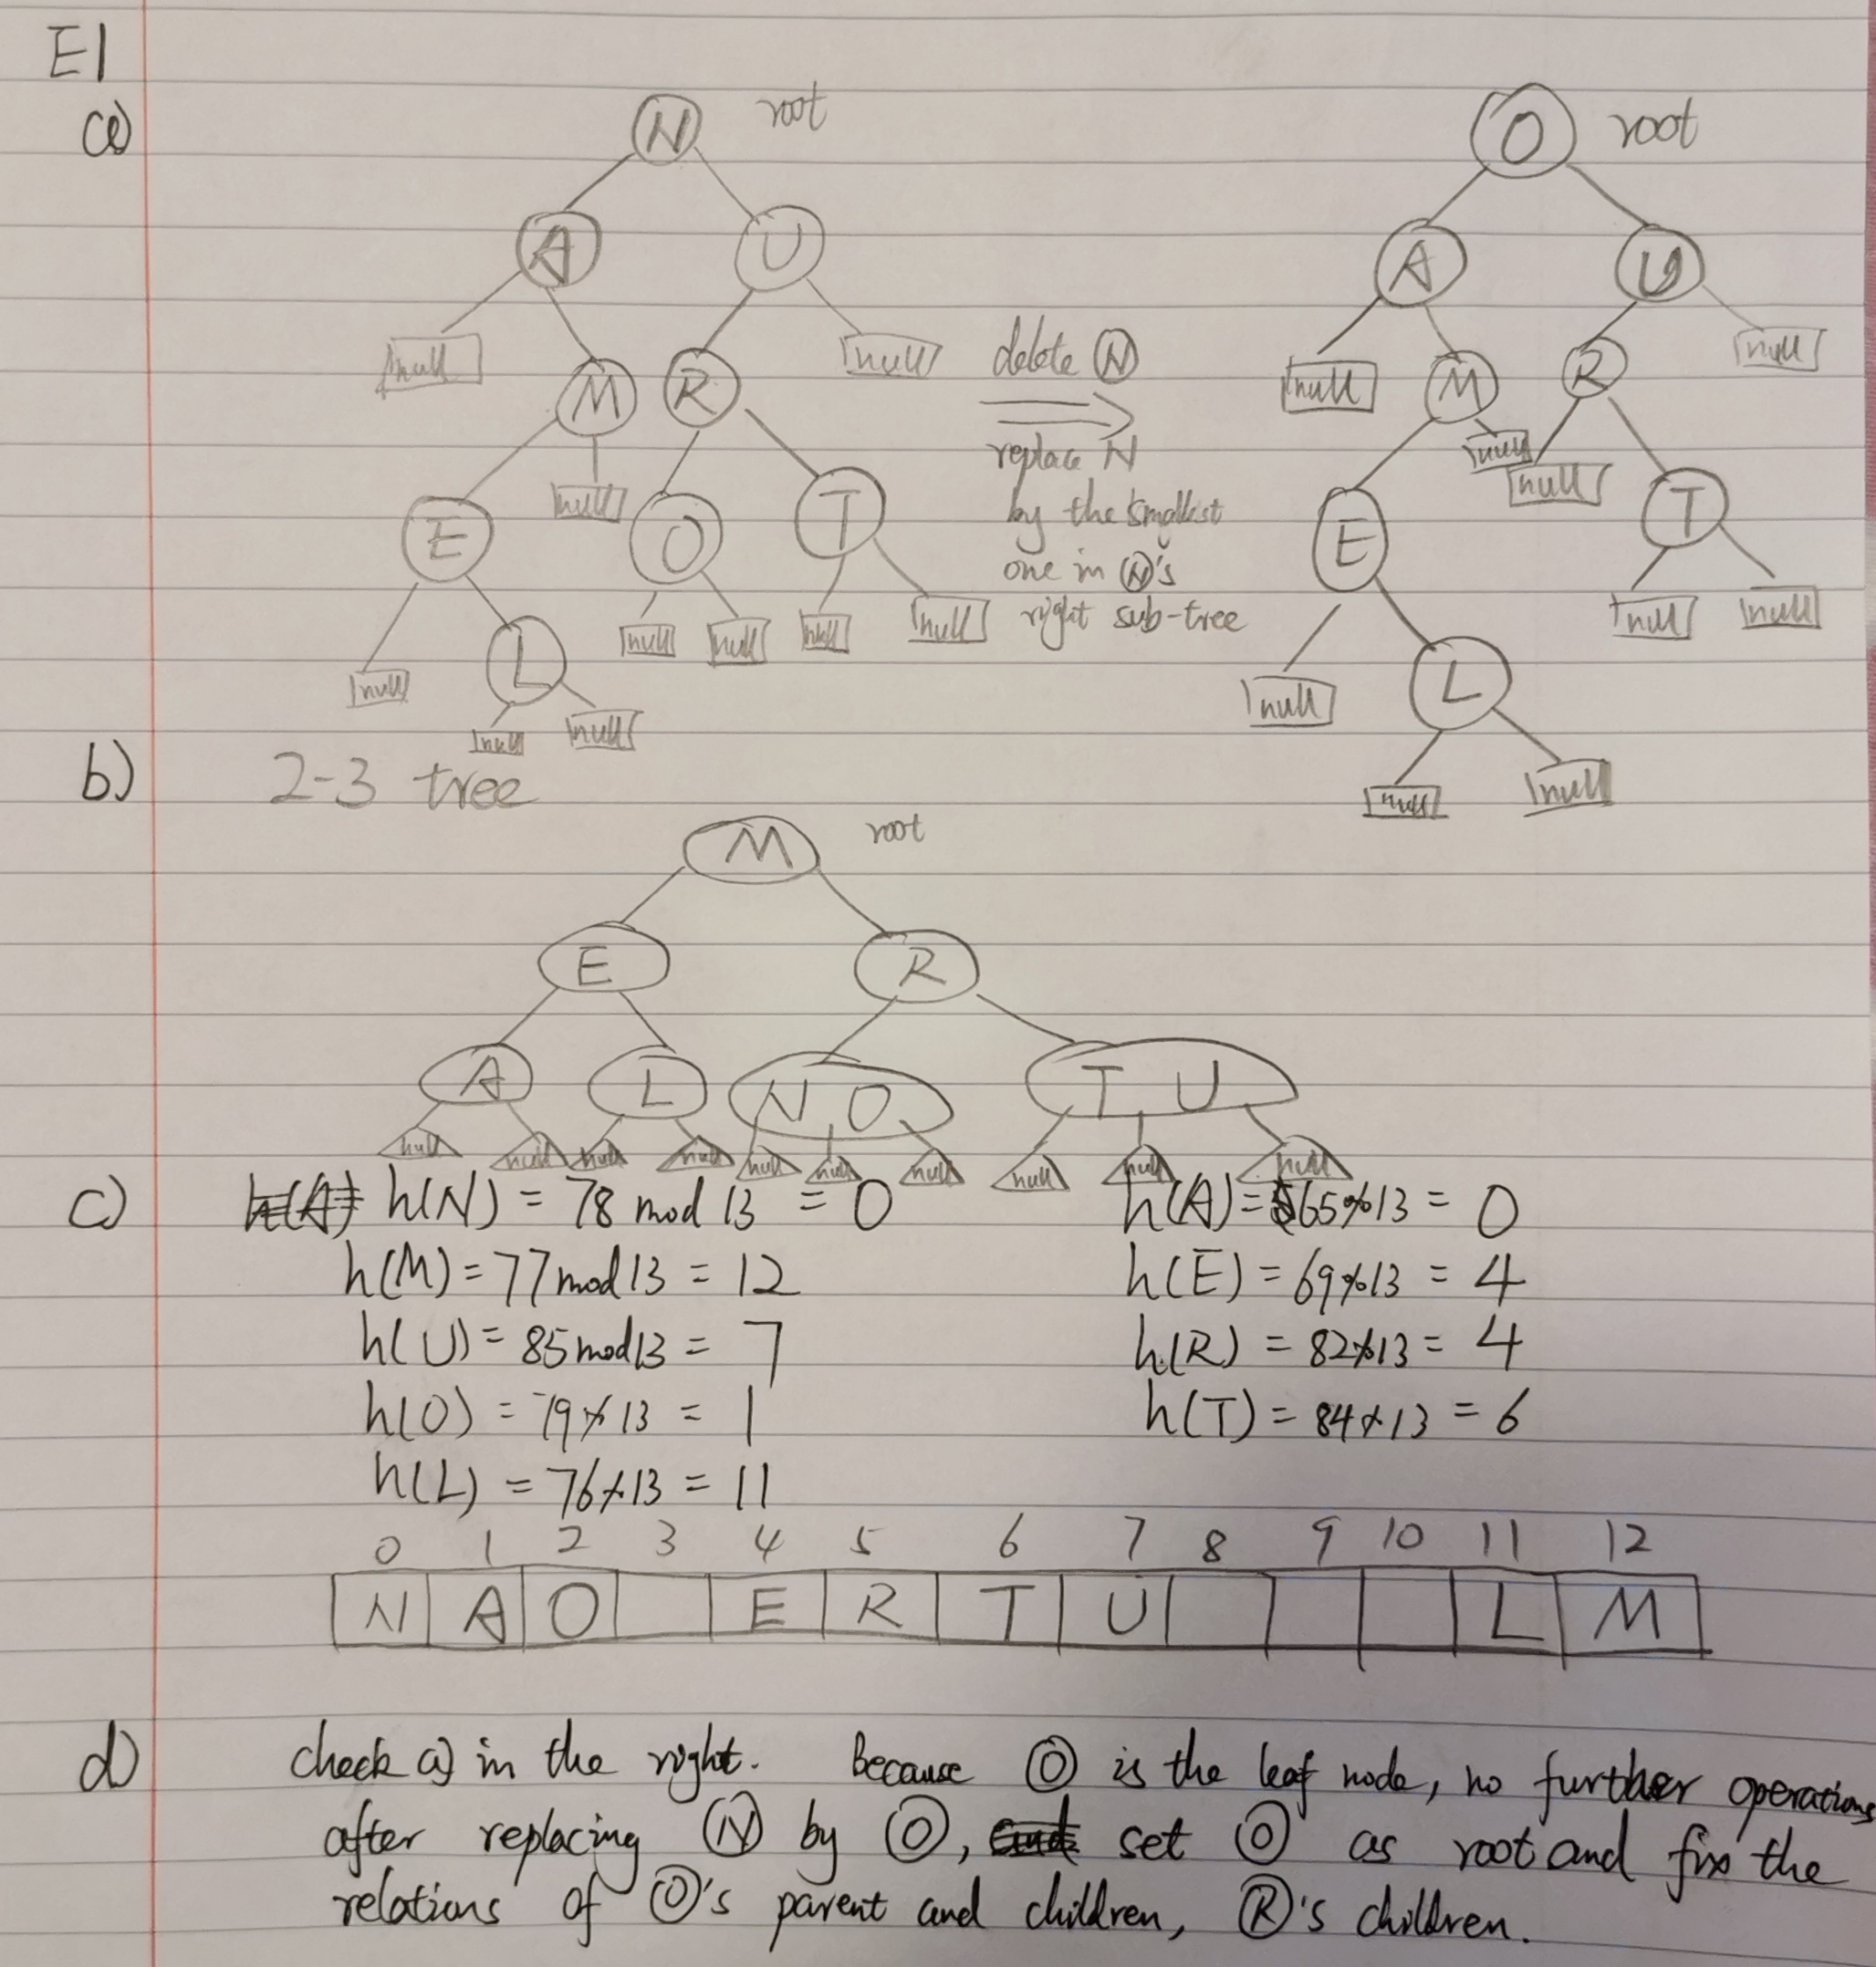 E1
a)
N root
A U
null M R null
E null O T
null L null null null null
null null
delete N
replace N
by the smallest
one in N's
right sub-tree
O root
A U
null M R null
E null null T
null L null null
null null
b) 2-3 tree
M root
E R
A L N O T U
null null null null null null null null null null
c) h(A) h(N) = 78 mod 13 = 0 h(A) = 65%13 = 0
h(M) = 77 mod 13 = 12 h(E) = 69%13 = 4
h(U) = 85 mod 13 = 7 h(R) = 82%13 = 4
h(O) = 79%13 = 1 h(T) = 84%13 = 6
h(L) = 76%13 = 11
0 1 2 3 4 5 6 7 8 9 10 11 12
N A O E R T U L M
d) check a) in the right. Because O is the leaf node, no further operations
after replacing N by O, and set O as root and fix the
relations of O's parent and children, R's children.